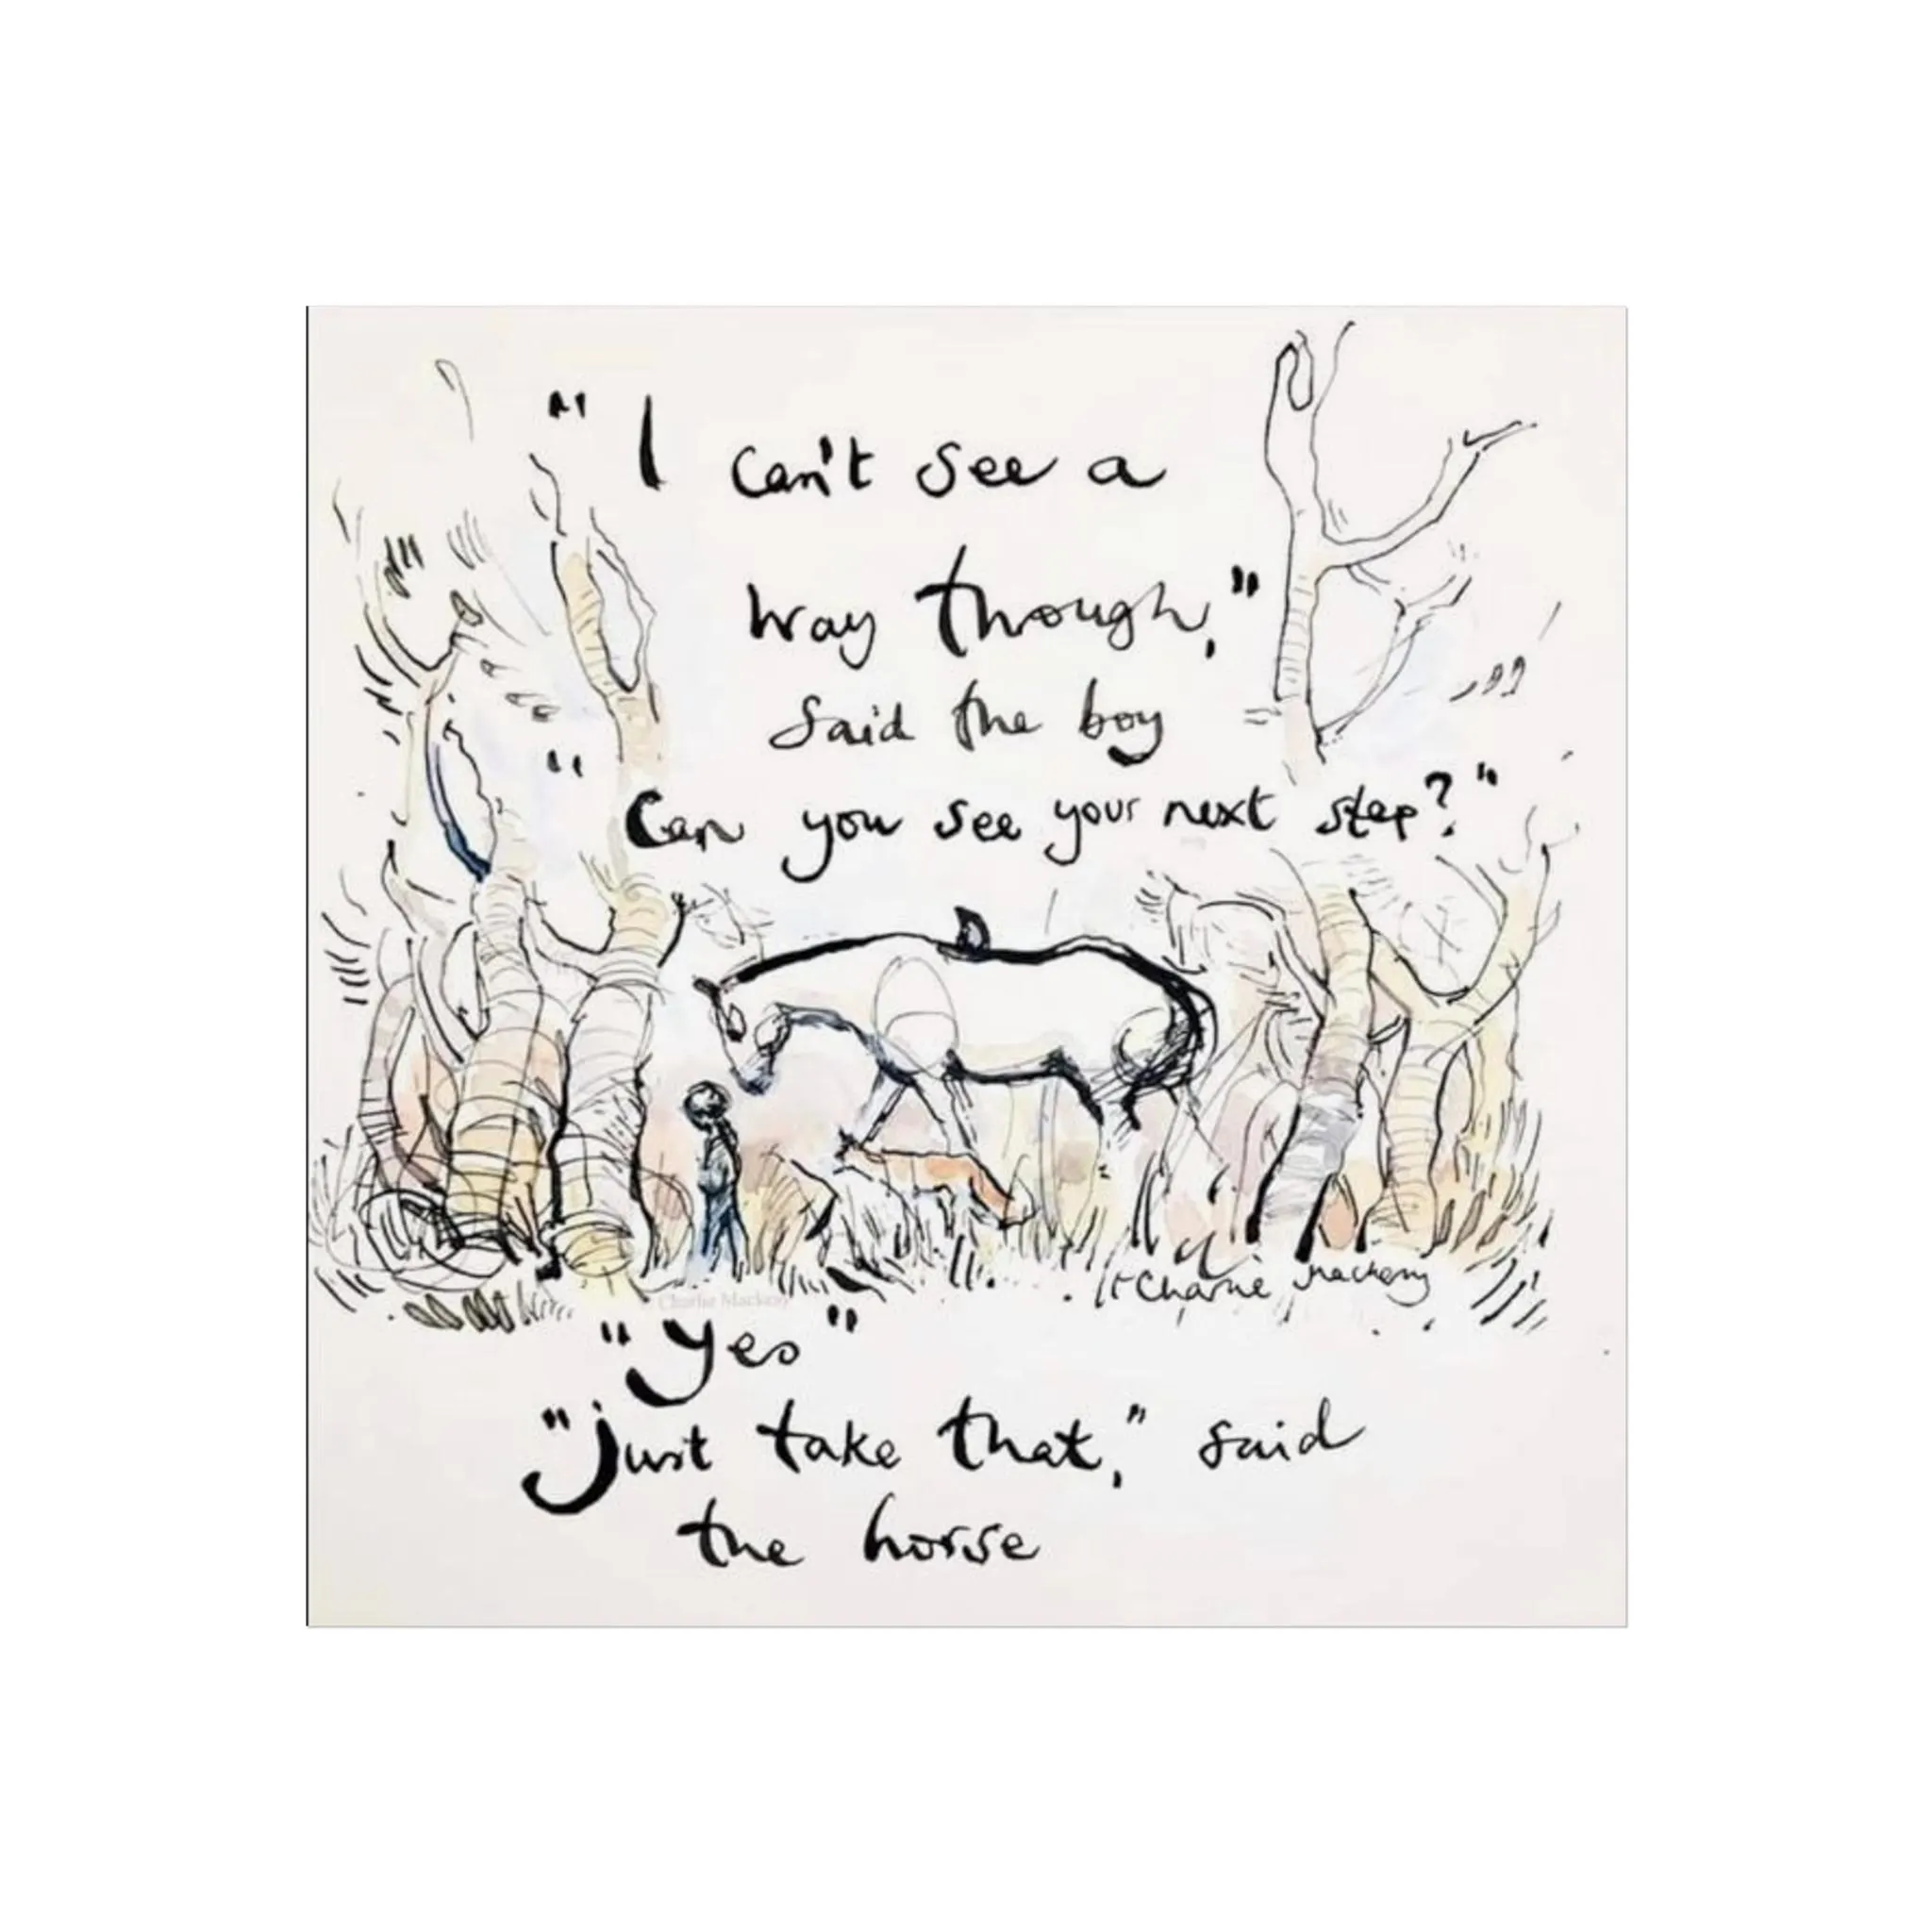 "I can't see a
way through,"
said the boy
"Can you see your next step?"
Charlie Mackesy
© Charlie Mackesy
"Yes"
"Just take that," said
the horse